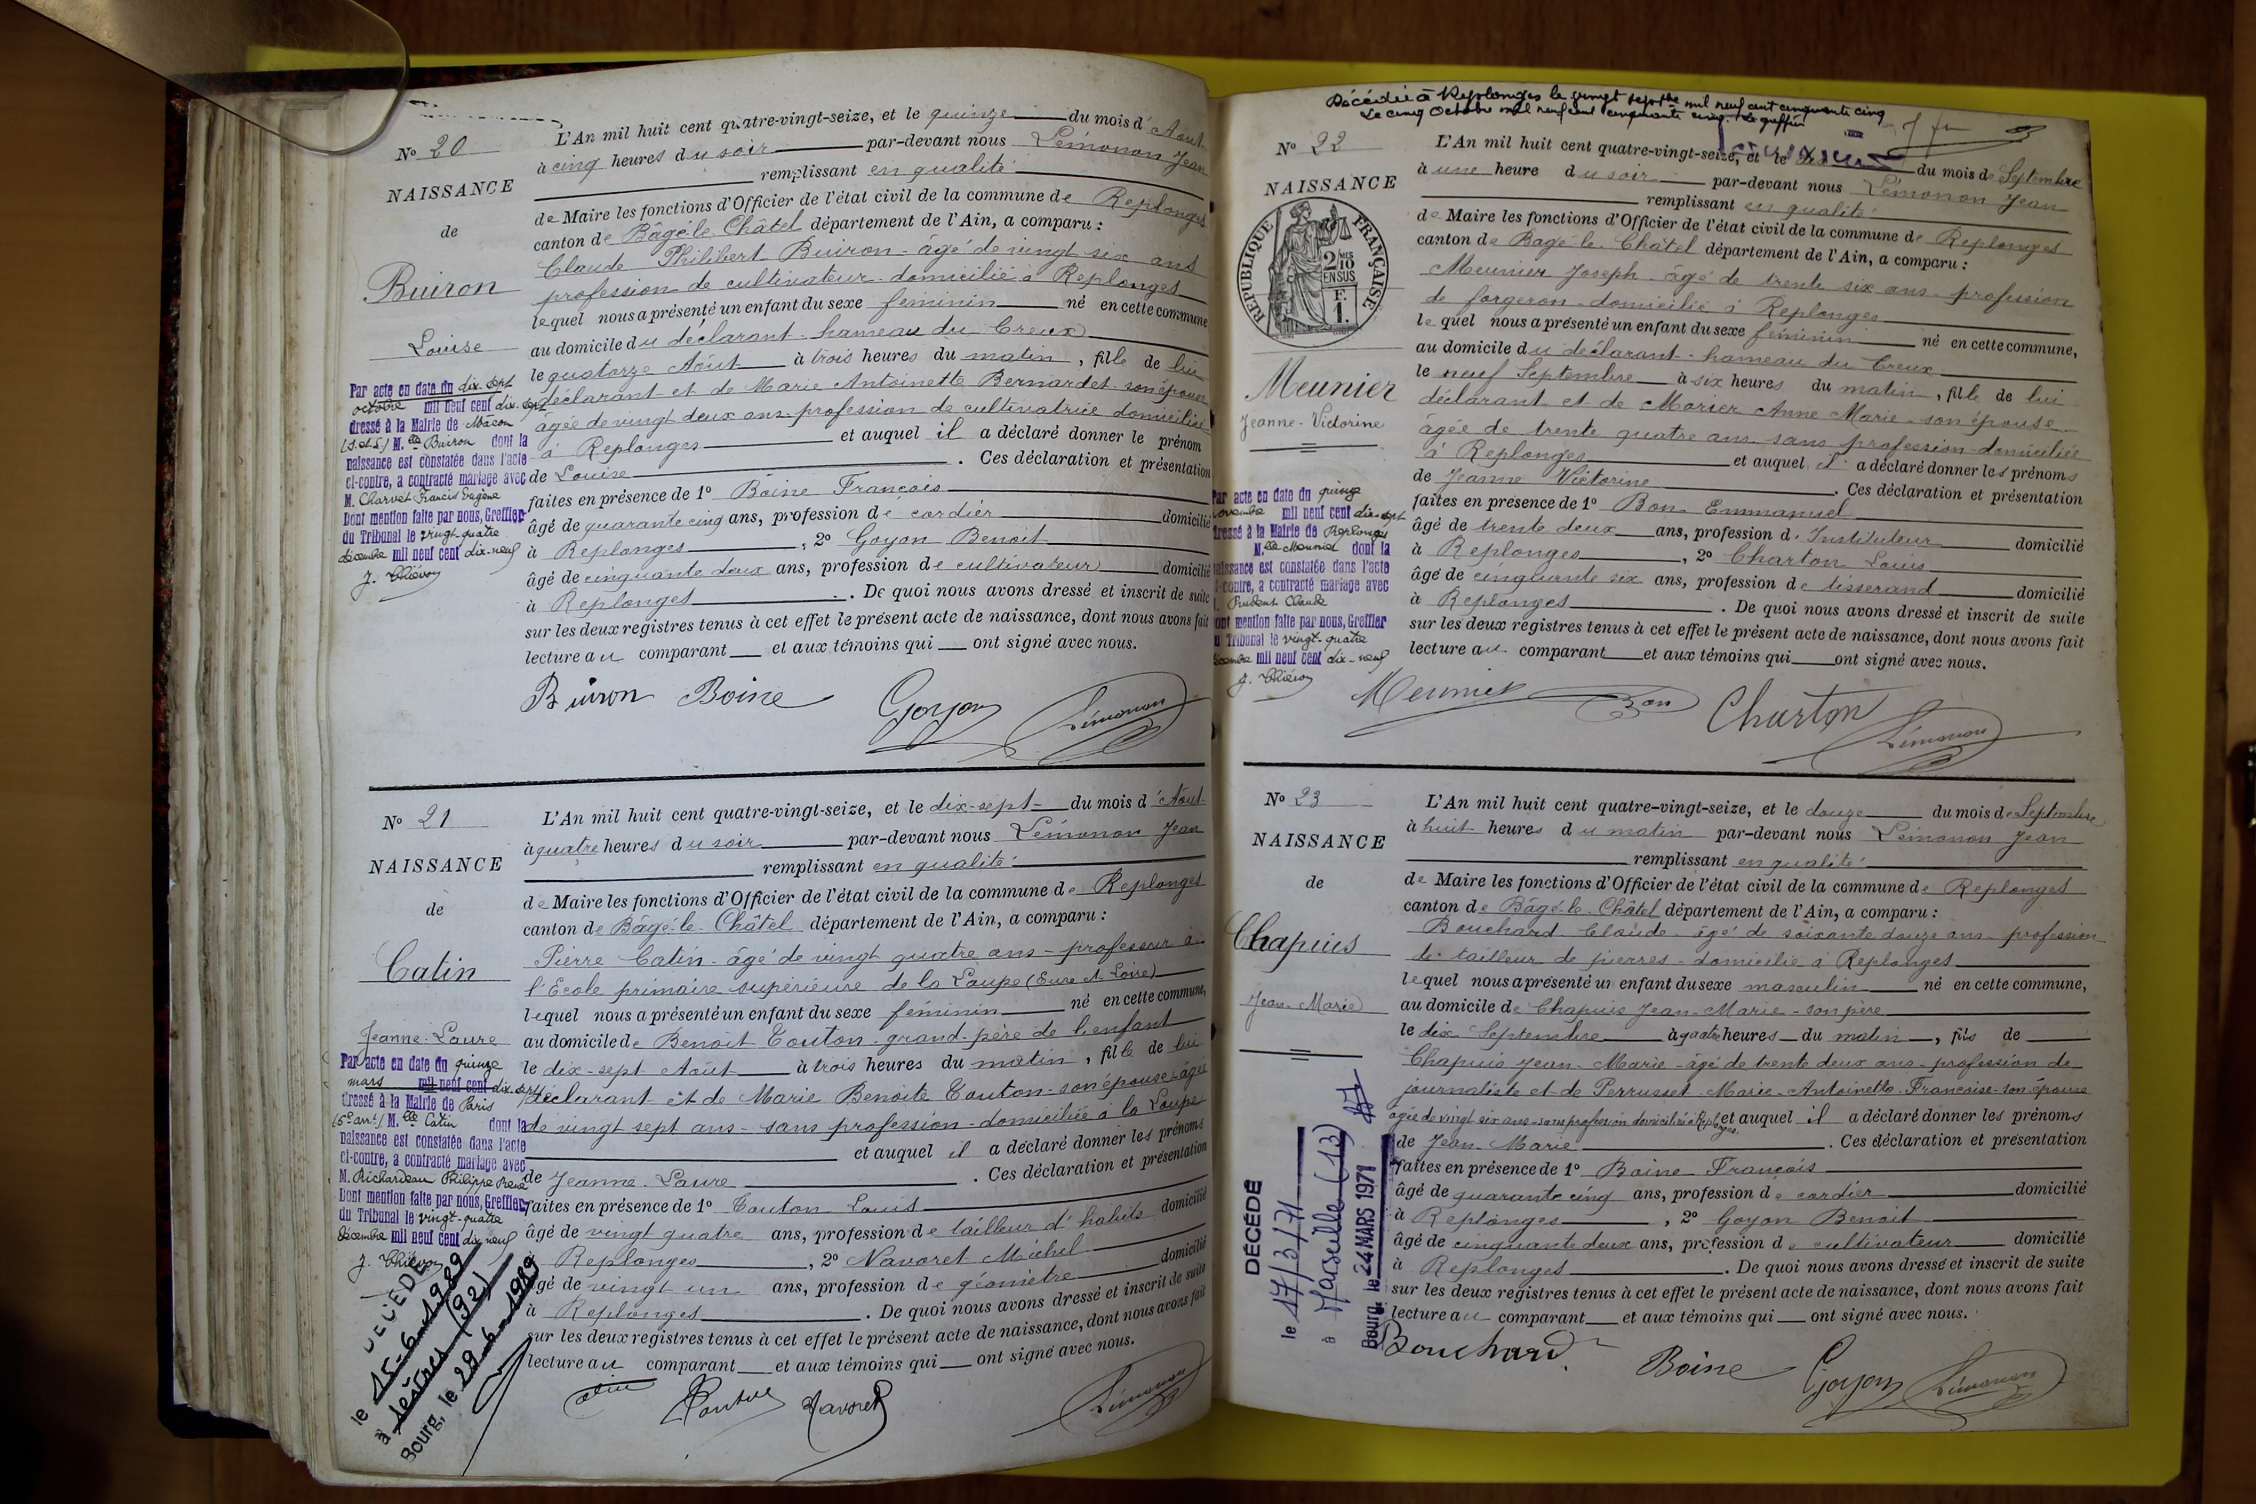 Nº 20
NAISSANCE
de
Buiron
Louise
Par acte en date du dix-sept
octobre mil neuf cent dix-sept
dressé à la Mairie de Mâcon
(S.et L.) M.elle Buiron dont la
naissance est constatée dans l'acte
ci-contre, a contracté mariage avec
M. Charvet Francis Eugène
Dont mention faite par nous, Greffier
du Tribunal le vingt-quatre
décembre mil neuf cent dix-neuf
L'An mil huit cent quatre-vingt-seize, et le quinze du mois d'Août
à cinq heures du soir par-devant nous Lémonon Jean
remplissant en qualité
de Maire les fonctions d'Officier de l'état civil de la commune de Replonges
canton de Bâgé-le-Châtel département de l'Ain, a comparu :
Claude Philibert Buiron - âgé de vingt six ans
profession de cultivateur - domicilié à Replonges
lequel nous a présenté un enfant du sexe féminin né en cette commune
au domicile du déclarant - hameau du Creux
le quatorze Août à trois heures du matin, fille de lui
déclarant et de Marie Antoinette Bernardet - son épouse
âgée de vingt deux ans - profession de cultivatrice domiciliée
à Replonges et auquel il a déclaré donner le prénom
de Louise . Ces déclaration et présentation
faites en présence de 1º Boine François
âgé de quarante cinq ans, profession de cordier domicilié
à Replonges , 2º Goyon Benoit
âgé de cinquante deux ans, profession de cultivateur domicilié
à Replonges . De quoi nous avons dressé et inscrit de suite
sur les deux registres tenus à cet effet le présent acte de naissance, dont nous avons fait
lecture au comparant et aux témoins qui ont signé avec nous.
Buiron Boine Goyon Lémonon
Nº 21
NAISSANCE
de
Catin
Jeanne-Laure
Par acte en date du quinze
mars mil neuf cent dix-sept
dressé à la Mairie de Paris
(5e arrt) M.elle Catin dont la
naissance est constatée dans l'acte
ci-contre, a contracté mariage avec
M. Richardeau Philippe René
Dont mention faite par nous, Greffier
du Tribunal le vingt-quatre
décembre mil neuf cent dix-neuf
DÉCÉDÉ
le 15-6-1989
à Sèvres (92)
Bourg, le 29-6-1989
L'An mil huit cent quatre-vingt-seize, et le dix-sept du mois d'Août
à quatre heures du soir par-devant nous Lémonon Jean
remplissant en qualité
de Maire les fonctions d'Officier de l'état civil de la commune de Replonges
canton de Bâgé-le-Châtel département de l'Ain, a comparu :
Pierre Catin - âgé de vingt quatre ans - professeur à
l'Ecole primaire supérieure de la Loupe (Eure et Loire)
lequel nous a présenté un enfant du sexe féminin né en cette commune,
au domicile de Benoit Touton - grand-père de l'enfant
le dix-sept Août à trois heures du matin, fille de lui
déclarant et de Marie Benoite Touton - son épouse - âgée
de vingt sept ans - sans profession - domiciliée à la Loupe
et auquel il a déclaré donner les prénoms
de Jeanne-Laure . Ces déclaration et présentation
faites en présence de 1º Touton Louis
âgé de vingt quatre ans, profession de tailleur d'habits domicilié
Replonges , 2º Navoret Michel
âgé de vingt un ans, profession de géomètre domicilié
à Replonges . De quoi nous avons dressé et inscrit de suite
sur les deux registres tenus à cet effet le présent acte de naissance, dont nous avons fait
lecture au comparant et aux témoins qui ont signé avec nous.
Catin Touton Navoret Lémonon
Décédée à Replonges le vingt septembre mil neuf cent cinquante cinq
Le cinq Octobre mil neuf cent cinquante cinq. Le greffier
Nº 22
NAISSANCE
RÉPUBLIQUE FRANÇAISE
2 DES 10 EN SUS
F. 1.
Meunier
Jeanne-Victorine
Par acte en date du quinze
novembre mil neuf cent dix-sept
dressé à la Mairie de Replonges
M.elle Meunier dont la
naissance est constatée dans l'acte
ci-contre, a contracté mariage avec
Prudent Claude
Dont mention faite par nous, Greffier
du Tribunal le vingt-quatre
décembre mil neuf cent dix-neuf
L'An mil huit cent quatre-vingt-seize, et le du mois de Septembre
à une heure du soir par-devant nous Lémonon Jean
remplissant en qualité
de Maire les fonctions d'Officier de l'état civil de la commune de Replonges
canton de Bagé-le-Châtel département de l'Ain, a comparu :
Meunier Joseph - âgé de trente six ans - profession
de forgeron - domicilié à Replonges
lequel nous a présenté un enfant du sexe féminin né en cette commune,
au domicile du déclarant - hameau du Creux
le neuf Septembre à six heures du matin, fille de lui
déclarant et de Morier Anne Marie - son épouse
âgée de trente quatre ans sans profession domiciliée
à Replonges et auquel il a déclaré donner les prénoms
de Jeanne Victorine . Ces déclaration et présentation
faites en présence de 1º Bon Emmanuel
âgé de trente deux ans, profession d'Instituteur domicilié
à Replonges , 2º Charton Louis
âgé de cinquante six ans, profession de tisserand domicilié
à Replonges . De quoi nous avons dressé et inscrit de suite
sur les deux registres tenus à cet effet le présent acte de naissance, dont nous avons fait
lecture au comparant et aux témoins qui ont signé avec nous.
Meunier Bon Charton Lémonon
Nº 23
NAISSANCE
de
Chapuis
Jean-Marie
DÉCÉDÉ
le 17/3/71
à Marseille (13)
Bourg, le 24 MARS 1971
L'An mil huit cent quatre-vingt-seize, et le douze du mois de Septembre
à huit heures du matin par-devant nous Lémonon Jean
remplissant en qualité
de Maire les fonctions d'Officier de l'état civil de la commune de Replonges
canton de Bâgé-le-Châtel département de l'Ain, a comparu :
Bouchard Claude - âgé de soixante douze ans - profession
de tailleur de pierres - domicilié à Replonges
lequel nous a présenté un enfant du sexe masculin né en cette commune,
au domicile de Chapuis Jean-Marie - son père
le dix Septembre à quatre heures du matin, fils de
Chapuis Jean-Marie - âgé de trente deux ans - profession de
journaliste et de Perrusset Marie-Antoinette-Francoise - son épouse
âgée de vingt six ans - sans profession domiciliée à Replonges et auquel il a déclaré donner les prénoms
de Jean-Marie . Ces déclaration et présentation
faites en présence de 1º Boine François
âgé de quarante cinq ans, profession de cordier domicilié
à Replonges , 2º Goyon Benoit
âgé de cinquante deux ans, profession de cultivateur domicilié
à Replonges . De quoi nous avons dressé et inscrit de suite
sur les deux registres tenus à cet effet le présent acte de naissance, dont nous avons fait
lecture au comparant et aux témoins qui ont signé avec nous.
Bouchard Boine Goyon Lémonon